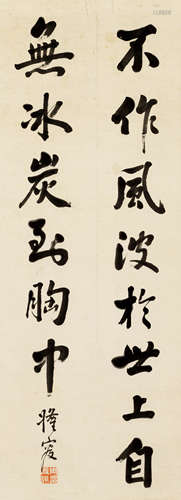 不作風波於世上自
無冰炭到胸中